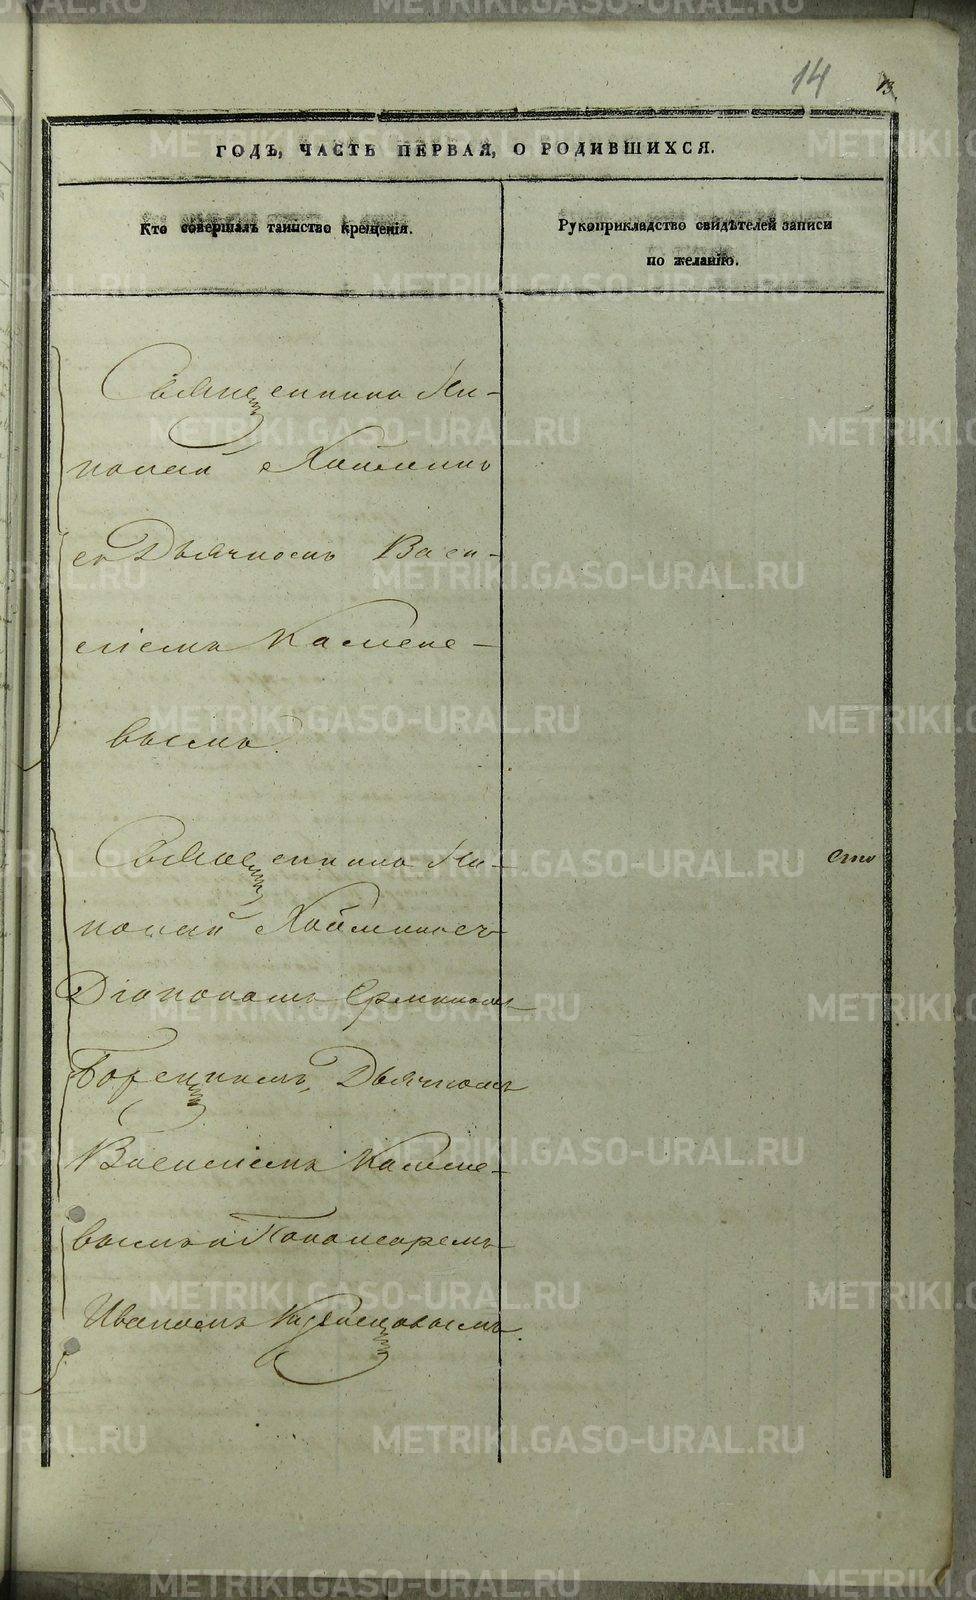 14
13.
ГОДЪ, ЧАСТЬ ПЕРВАЯ, О РОДИВШИХСЯ.
Кто совершалъ таинство крещенія.
Рукоприкладство свидѣтелей записи
по желанію.
Священникъ Ни-
колай
съ Дьячкомъ Васи-
ліемъ Камене-
вымъ.
Священникъ Ни-
колай
Діакономъ
Дьячкомъ
Василіемъ Камене-
вымъ и Пономаремъ
Иваномъ Кузнецовымъ.
METRIKI.GASO-URAL.RU